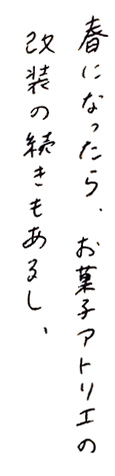 春になったら、お菓子アトリエの
改装の続きもあるし、